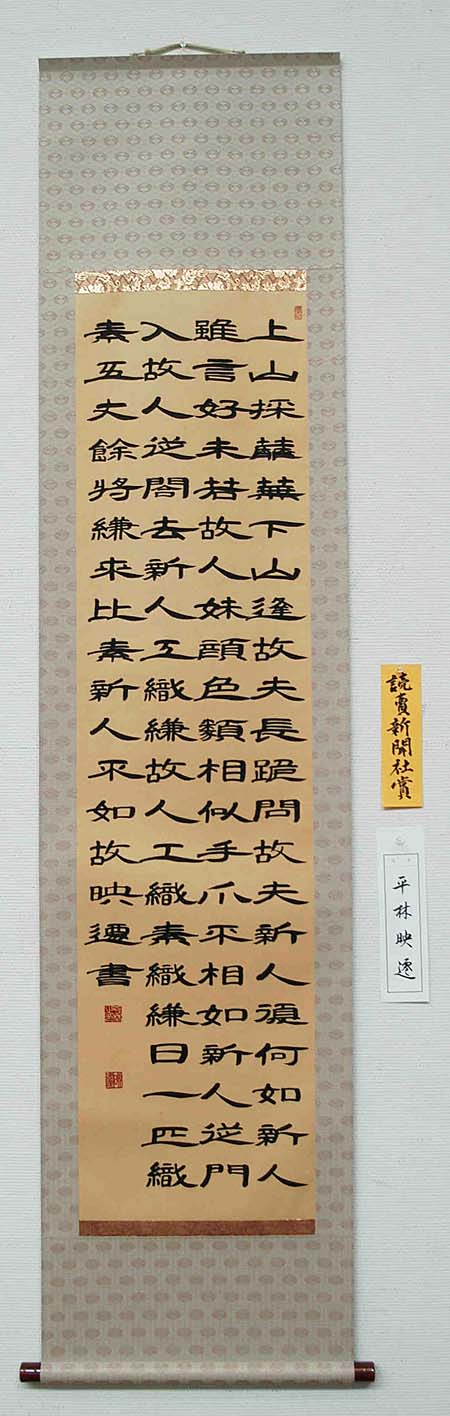 上山採蘼蕪下山逢故夫長跪問故夫新人復何如新人
雖言好未若故人姝顔色類相似手爪不相如新人從門
入故人從閤去新人工織縑故人工織素織縑日一匹織
素五丈餘將縑來比素新人不如故映遷書
読賣新聞社賞
平林映遷